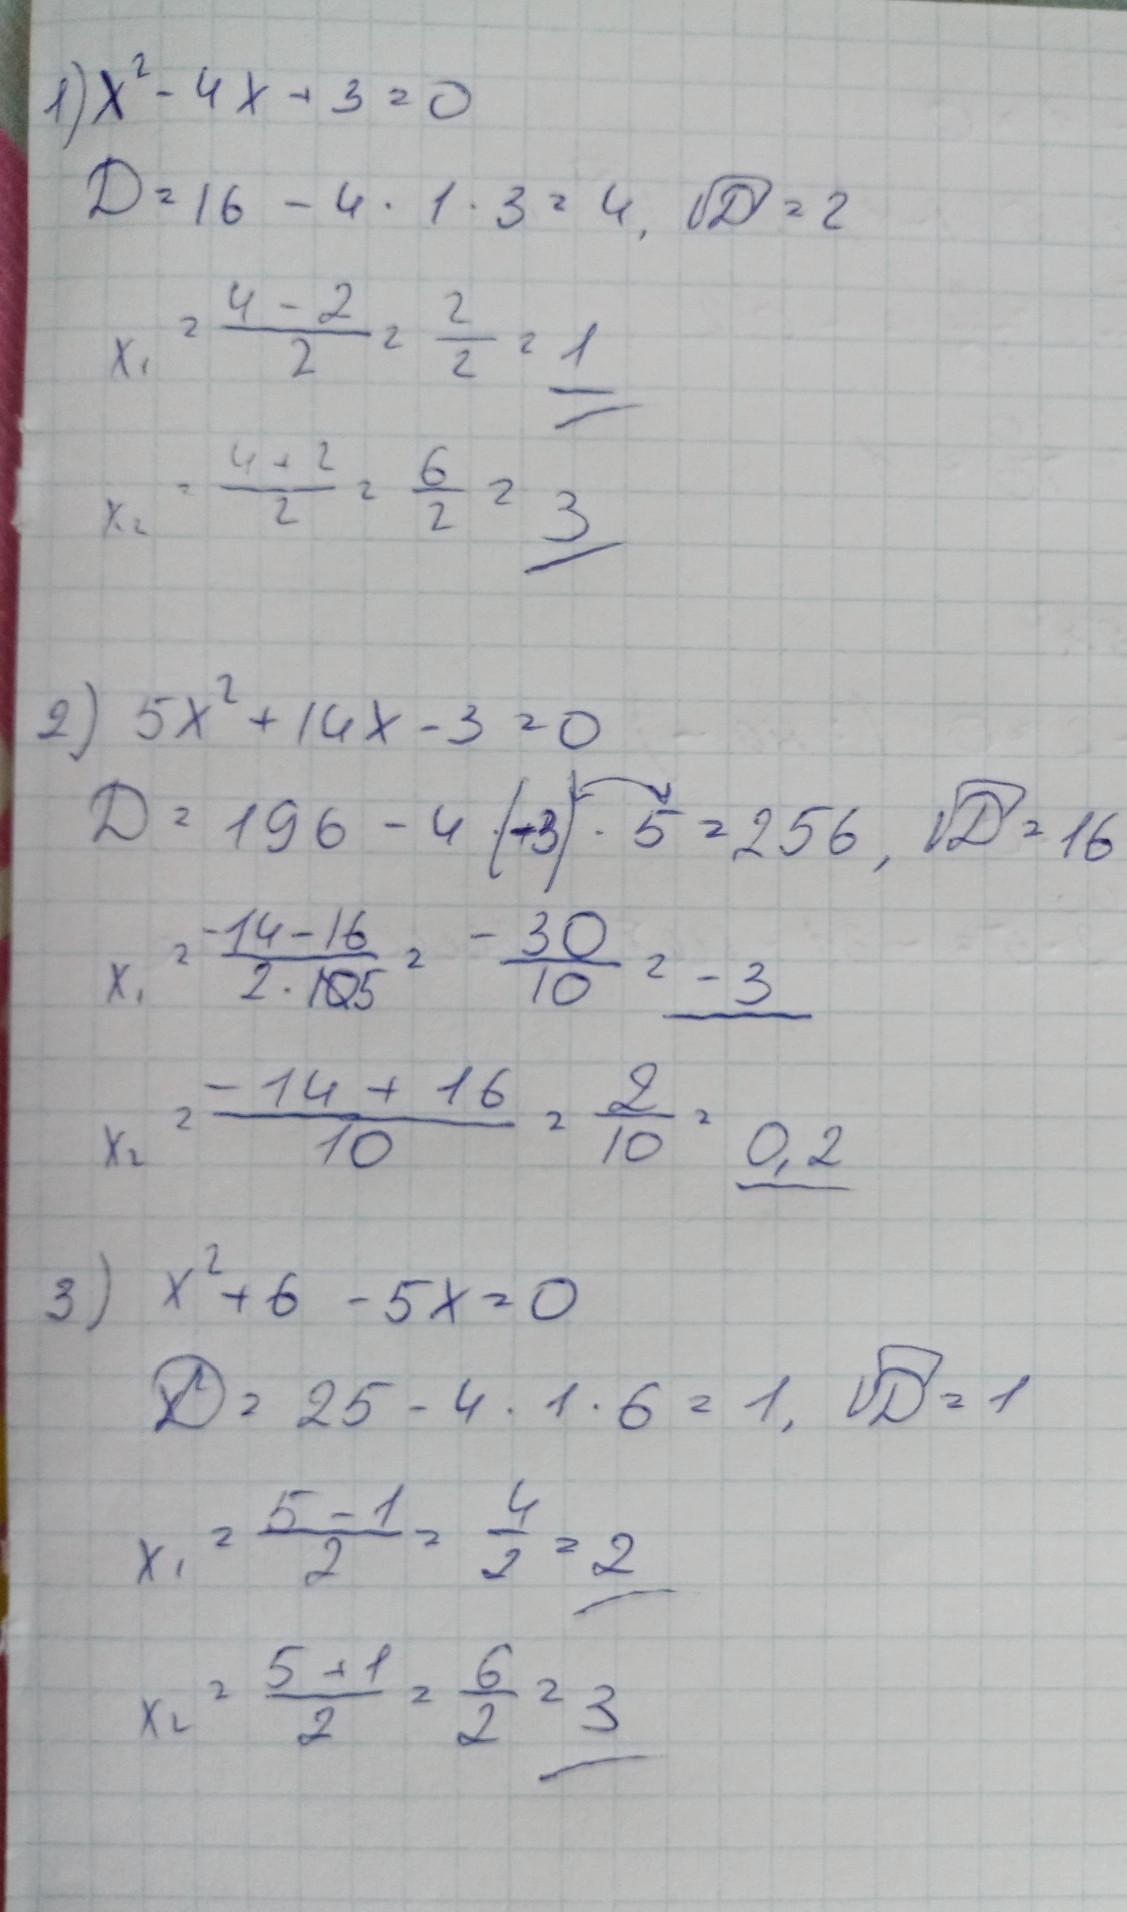 1) x² - 4x + 3 = 0
D = 16 - 4 · 1 · 3 = 4, √D = 2
x₁ = (4 - 2)/2 = 2/2 = 1
x₂ = (4 + 2)/2 = 6/2 = 3
2) 5x² + 14x - 3 = 0
D = 196 - 4 · (-3) · 5 = 256, √D = 16
x₁ = (-14 - 16)/(2 · 5) = -30/10 = -3
x₂ = (-14 + 16)/10 = 2/10 = 0,2
3) x² + 6 - 5x = 0
D = 25 - 4 · 1 · 6 = 1, √D = 1
x₁ = (5 - 1)/2 = 4/2 = 2
x₂ = (5 + 1)/2 = 6/2 = 3